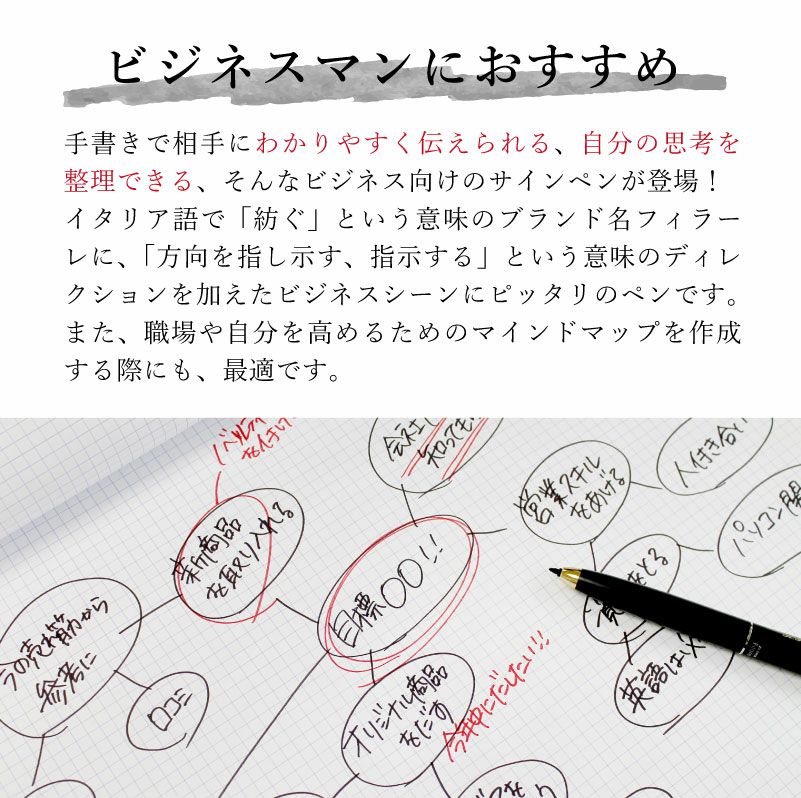 ビジネスマンにおすすめ
手書きで相手にわかりやすく伝えられる、自分の思考を
整理できる、そんなビジネス向けのサインペンが登場!
イタリア語で「紡ぐ」という意味のブランド名フィラー
レに、「方向を指し示す、指示する」という意味のディレ
クションを加えたビジネスシーンにピッタリのペンです。
また、職場や自分を高めるためのマインドマップを作成
する際にも、最適です。
知っても
営業スキル
をあげる
人付き合い
パソコン関
新商品
を取り入れる
目標〇〇!!
今の売れ筋から
参考に
口コミ
オリジナル商品
をだす
今年中にだしたい!!
をとる
英語は